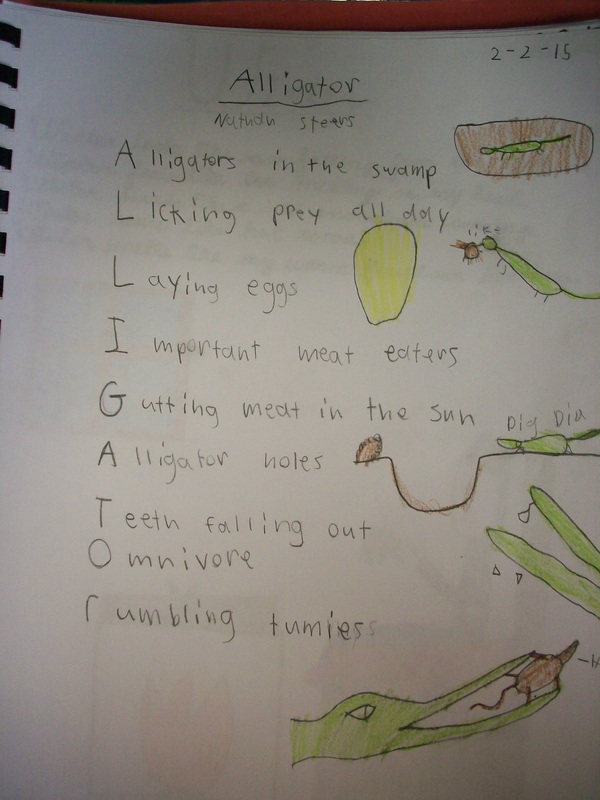 2-2-15
Alligator
Nathan steers
Alligators in the swamp
Licking prey all day
Laying eggs
Important meat eaters
Gutting meat in the sun
Dig Dig
Alligator holes
Teeth falling out
Omnivore
rumbling tumiess